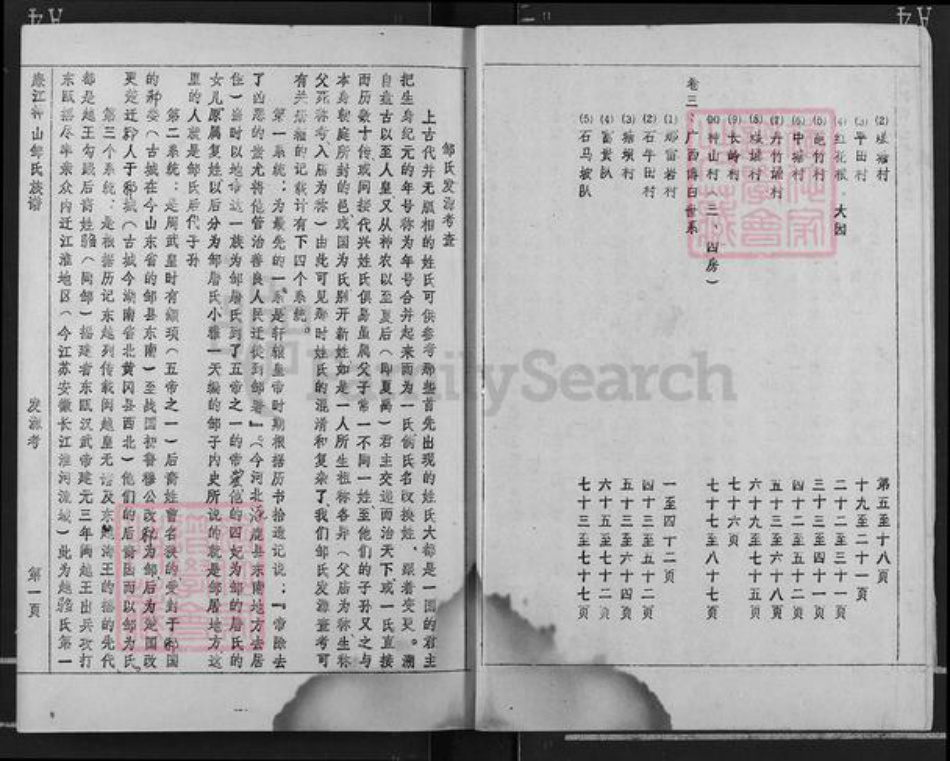 (2) 塘村 第五至十八页
(3) 平田村 十九至二十一页
(4) 红花根、大园 二十二至三十一页
(5) 竹村 三十三至四十一页
(6) 中塘村 四十二至五十二页
(7) 丹竹塘村 五十三至六十八页
(8) 塘村 六十九至七十五页
(9) 长岭村 七十六页
(10) 神山村(三、四房) 七十七至八十七页
卷三、广西博白世系
(1) 那富岩村 一至四十二页
(2) 石牛田村 四十三至五十二页
(3) 塘坝村 五十三至六十四页
(4) 富贵队 六十五至七十二页
(5) 石马坡队 七十三至七十七页
邹氏发源考查
上古代并无版相的姓氏可供参考那些首先出现的姓氏大都是一国的君主
把生身纪元的年号称为年号合并起来而为一氏倘氏名改换姓、跟者变更。溯
自盘古以至人皇又从神农以至夏后(即夏禹)君主交递而治天下或一氏直接
而历数十传或间接代兴姓氏俱易虽属父子常一不同一姓至他们的子孙又之与
本身朝庭所封的邑或国为氏别开新姓如是一人所生祖称各异(父庙为祢生称
父死称考入庙为祢)由此可见那时姓氏的混淆和复杂了我们邹氏发源查考可
有关谱牒的记载计有下四个系统。
第一系统:为最先的一系是轩辕皇帝时期根据历书拾遗记说:『帝除去
了凶恶的蚩尤将他管治善良人民迁徙到邹屠』。(今河北涿鹿县东南地方去居
住)当时以地帝这一族为邹屠氏到了五帝之一的帝喾他的四妃为邹的屠氏的
女儿原属复姓以后分为邹屠氏小雅一天编的邹子内史所说的就是邹屠地方这
里的人就是邹氏后代子孙
第二系统:是周武皇时有颛顼(五帝之一)后裔姓曹名挟的受封于邾国
的邾娄(古城在今山东省的邹县东南)至战国初鲁穆公改邾为邹后为楚国改
更楚迁邾人于邾城(古城今湖南省北黄冈县西北)他们的后裔因而以邹为氏
第三个系统:是根据历记东越列传载闽越皇无诸及东越海王的摇的先代
都是越王勾践后裔姓驺(同邹)摇建者东瓯汉武帝建元三年闽越王出兵攻打
东瓯摇尽率亲众内迁江淮地区(今江苏安徽长江淮河流域)此为越驺氏第一
廉江神山邹氏族谱 发源考 第一页